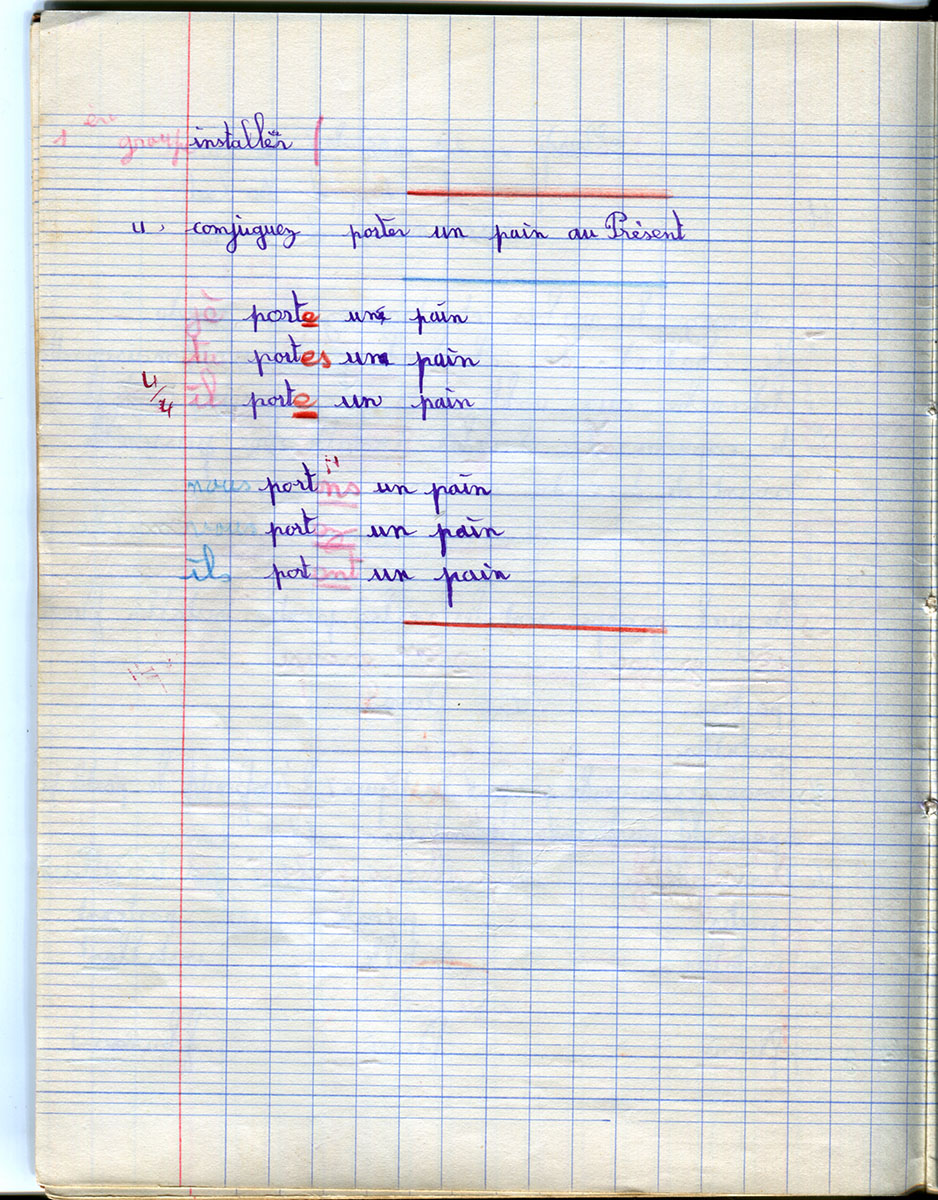 1 èr group installer
4, conjuguez porter un pain au Présent
je porte un pain
tu portes un pain
4/4 il porte un pain
nous portns un pain
port un pain
ils portent un pain